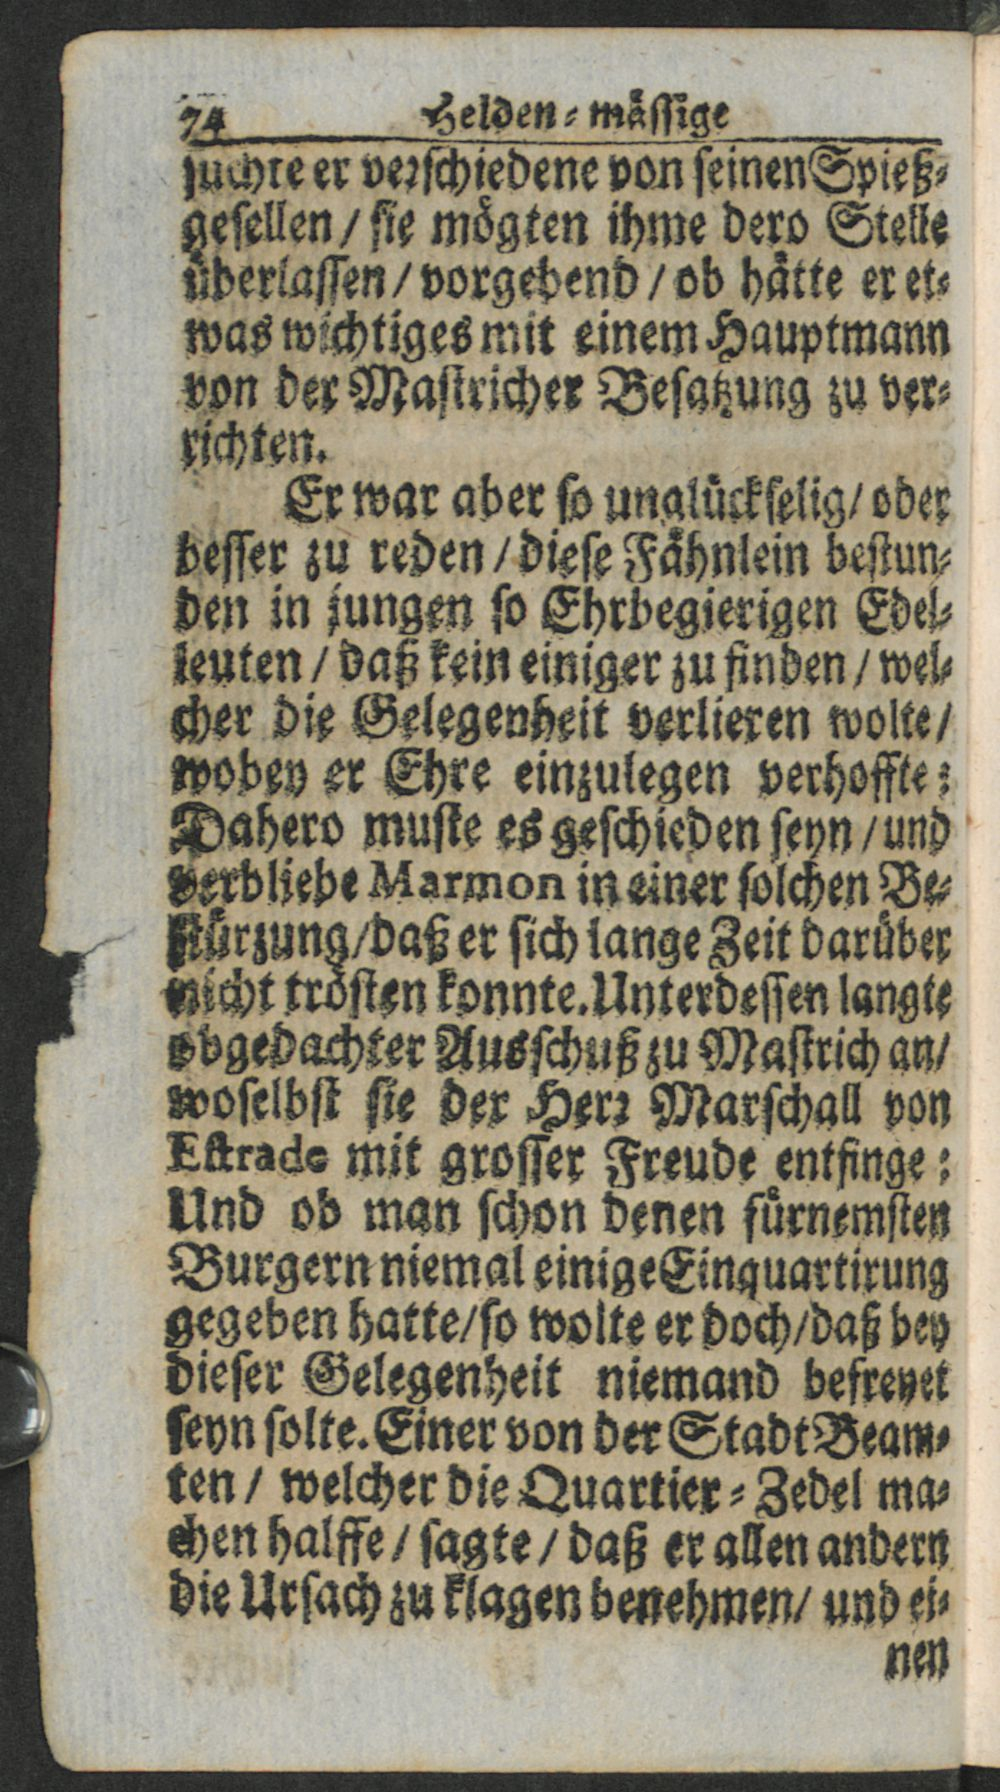 74 Helden-mässige
suchte er verschiedene von seinen Spieß-
gesellen / sie mögten ihme dero Stelle
überlassen / vorgebend / ob hätte er et-
was wichtiges mit einem Hauptmann
von der Mastricher Besatzung zu ver-
richten.
Er war aber so unglückselig / oder
besser zu reden / diese Fähnlein bestun-
den in jungen so Ehrbegierigen Edel-
leuten / daß kein einiger zu finden / wel-
cher die Gelegenheit verlieren wolte /
wobey er Ehre einzulegen verhoffte:
Dahero muste es geschieden seyn / und
verbliebe Marmon in einer solchen Be-
stürzung / daß er sich lange Zeit darüber
nicht trösten konnte. Unterdessen langte
obgedachter Ausschuß zu Mastrich an /
woselbst sie der Herr Marschall von
Estrade mit grosser Freude entfinge:
Und ob man schon denen fürnemsten
Burgern niemal einige Einquartirung
gegeben hatte / so wolte er doch / daß bey
dieser Gelegenheit niemand befreyet
seyn solte. Einer von der Stadt Beam-
ten / welcher die Quartier-Zedel ma-
chen halffe / sagte / daß er allen andern
die Ursach zu klagen benehmen / und ei-
nen